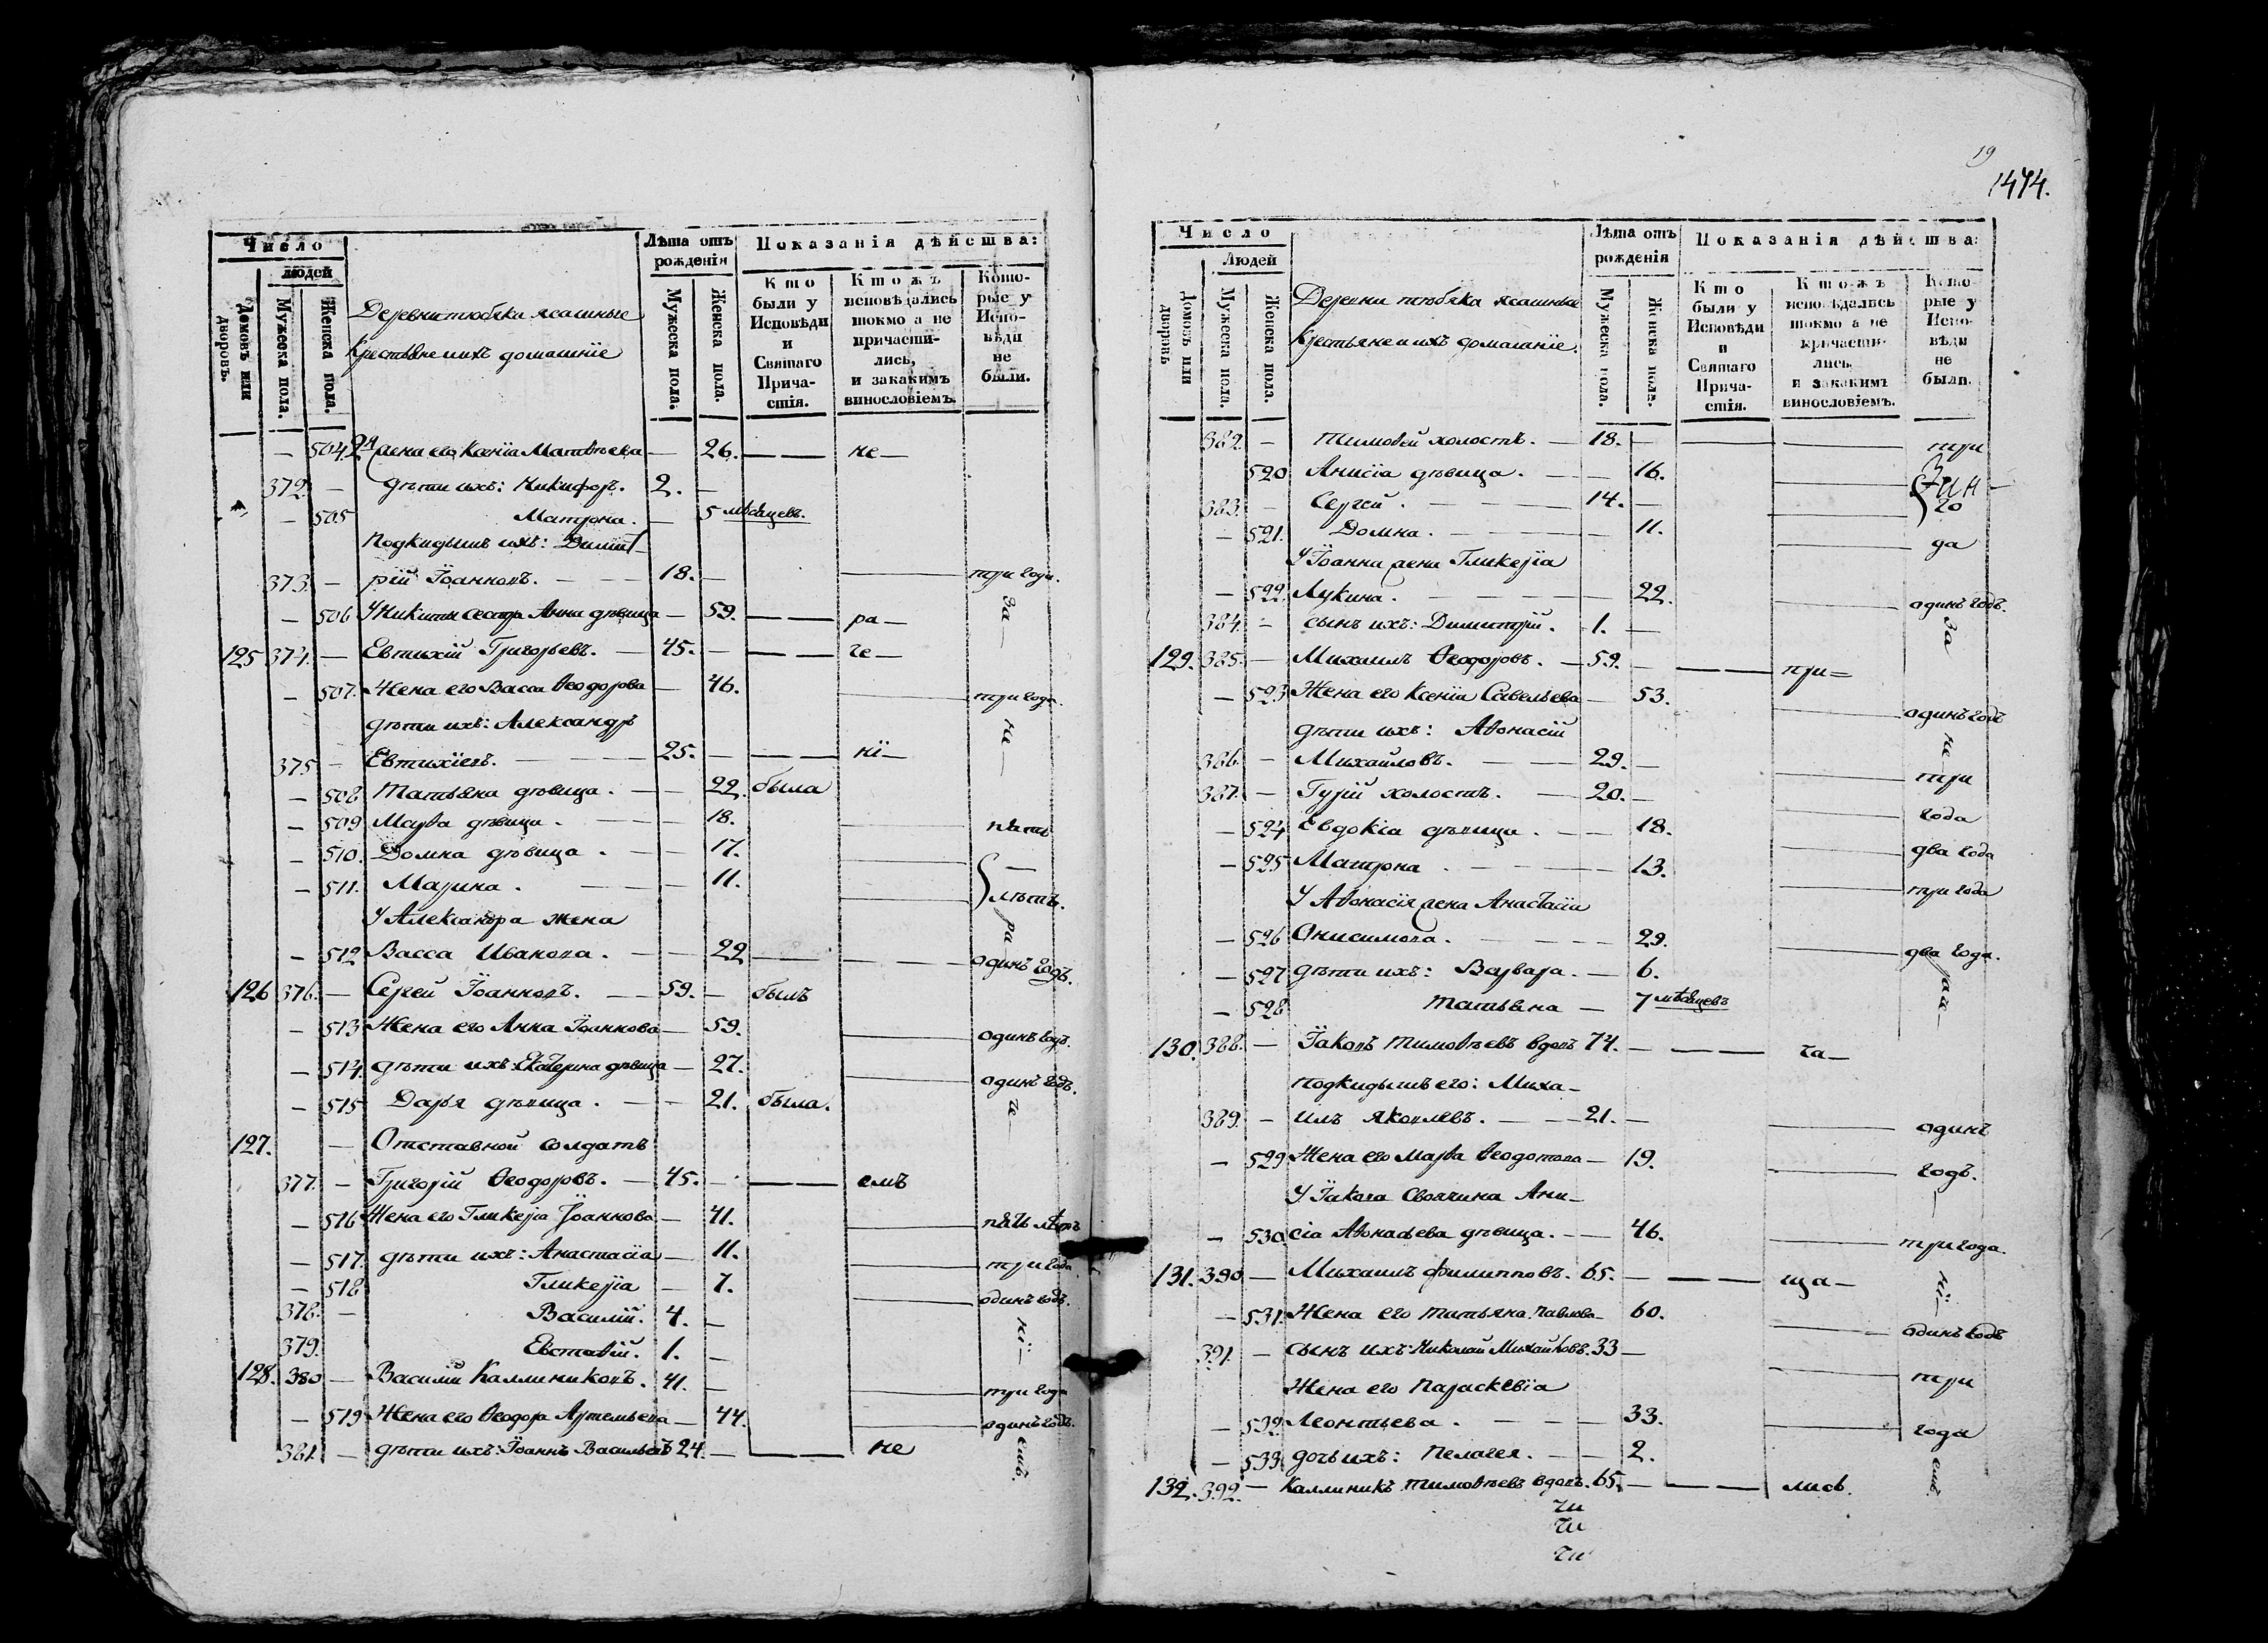 Число
людей
Домовъ или дворовъ.
Мужеска пола.
Женска пола.
Деревни тюбяка ясашные
Крестьяне и ихъ домашніе
Лѣта отъ рожденія
Мужеска пола.
Женска пола.
Показанія дѣйства:
Кто были у Исповѣди и Святаго Причастія.
Ктожъ исповѣдались токмо а не причастились, и закакимъ винословіемъ.
Которые у Исповѣди не были.
— 504 2я жена его Ксенія Матвѣева — 26. — — не —
372. — дѣти ихъ: Никифоръ. 2. —
— 505 Матрона. — 5 мѣсяцевъ.
Подкидышъ ихъ: Димит-
373. — рій Іоанновъ. — — 18. — — три года.
— 506 У Никиты сестра Анна дѣвица — 59. — — ра — за —
125 374. — Евтихій Григорьевъ. — 45. — — — че —
— 507. Жена его Васса Ѳеодорова — 46. — три года.
дѣти ихъ: Александръ не —
375 — Евтихіевъ. — — — 25. — — — нї —
— 508 Татьяна дѣвица. — — 22. была
— 509 Марѳа дѣвица. — — 18. — пять
— 510. Домна дѣвица. — — 17. — —
— 511. Марина. — — — 11. — лѣтъ.
У Александра жена ра —
— 512 Васса Иванова. — — 22 — — — одинъ годъ.
126 376. — Сергей Іоанновъ. — 59. — былъ
— 513 Жена его Анна Іоаннова — 59. — одинъ годъ.
— 514. дѣти ихъ: Екатерина дѣвица — 27. — одинъ годъ.
— 515 Дарья дѣвица. — — 21. была. че —
127. — Отставной солдатъ
377. — Григорій Ѳеодоровъ. — 45. — — — емъ
— 516 Жена его Гликерія Іоаннова — 41. — пять лѣтъ
— 517. дѣти ихъ: Анастасія — 11. — три года
— 518 Гликерія — 7. — одинъ годъ.
378. — Василій. 4. —
379. Евстаѳій. 1. — нї —
128. 380 — Василій Каллиниковъ. 41. — — три года
— 519 Жена его Ѳеодора Артемьева — 44. — одинъ годъ.
381. — дѣти ихъ: Іоаннъ Васильевъ 24. — — — не емъ.
19
1474.
Число
Людей
Домовъ или дворовъ
Мужеска пола.
Женска пола.
Деревни тюбяка ясашные
Крестьяне и ихъ домашніе.
Лѣта отъ рожденія
Мужеска пола.
Женска пола.
Показанія дѣйства:
Кто были у Исповѣди и Святаго Причастія.
Ктожъ исповѣдались токмо а не причастились, и закакимъ винословіемъ.
Которые у Исповѣди не были.
382. — Тимоѳей холостъ. — 18. — — — три
520 Анисія дѣвица. — — 16. —
383. — Сергей. — — 14. — — го
— 521. Домна. — — — — 11. — да
У Іоанна жена Гликерія
— 522. Лукина. — — — — 22. — одинъ годъ.
384. — сынъ ихъ: Димитрій. 1. — за
129. 385. — Михаилъ Ѳеодоровъ. — 59. — — — при=
— 523 Жена его Ксенія Савельева — 53. — одинъ годъ
дѣти ихъ: Аѳонасій не —
386. — Михайловъ. — — 29. — — три
387. — Гурій холостъ. — 20. — — года
— 524 Евдокія дѣвица. — — 18. — два года
— 525 Матрона — — — 13. — три года
У Аѳонасія жена Анастасія
— 526 Онисимова. — — — — 29. — два года.
— 527 дѣти ихъ: Варвара. — 6.
— 528 Татьяна — 7 мѣсяцевъ
130. 388. — Іаковъ Тимоѳѣевъ вдовъ 74. — — — ча —
подкидышъ его: Миха-
389. — илъ Яковлевъ. — — 21. — — одинъ
— 529 Жена его Марѳа Ѳеодотова — 19. — годъ.
У Іакова своячина Ани-
— 530 сія Аѳонасьева дѣвица. — — 46. — три года.
131. 390 — Михаилъ Филипповъ. 65. — — — ща — нї —
— 531. Жена его Татьяна Павлова — 60. — одинъ годъ
391. — сынъ ихъ: Николай Михайловъ. 33 — — три
Жена его Параскевія
— 532. Леонтьева. — — — 33. — года
— 533 дочь ихъ: Пелагея. — — 2. емъ.
132. 392. — Каллиникъ Тимоѳѣевъ вдовъ. 65. — — — лись.
чи
чи
чи